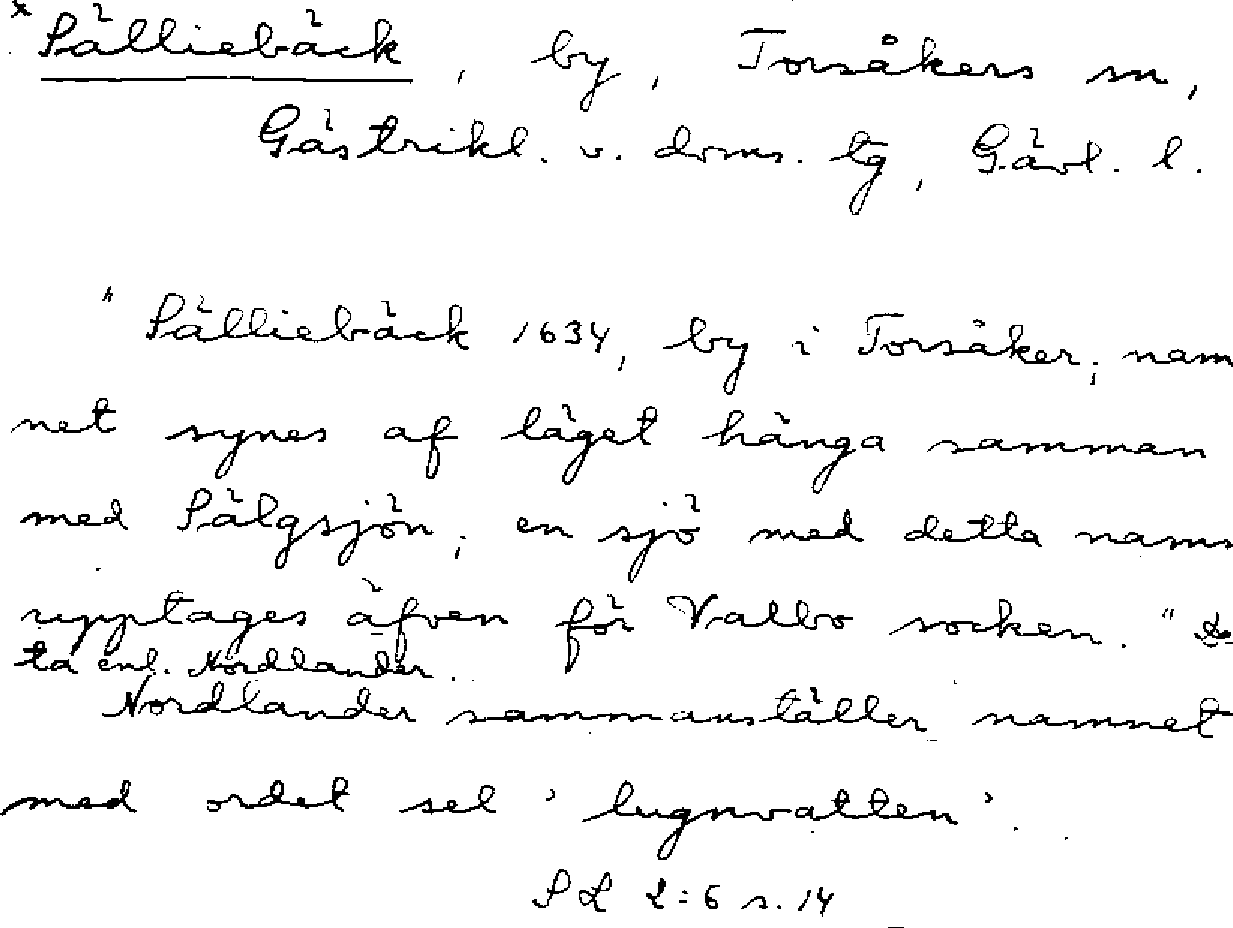 x Sälliebäck, by, Torsåkers sn,
Gästrikl. v. doms. tg, Gävl. l.
"Sälliebäck 1634, by i Torsåker; nam
net synes af läget hänga samman
med Sälgsjön; en sjö med detta namn
upptages äfven för Valbo socken."
ta enl. Nordlander.
Nordlander sammanställer namnet
med ordet sel 'lugnvatten'.
SL 2:6 s. 14